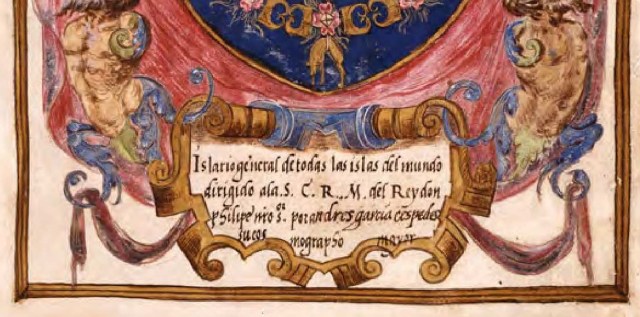 Islario general de todas las islas del mundo
dirigido a la. S. C. R. M. del Rey don
philipe nro s.ᵒʳ por andres garcia cespedes
su cos mographo mayor